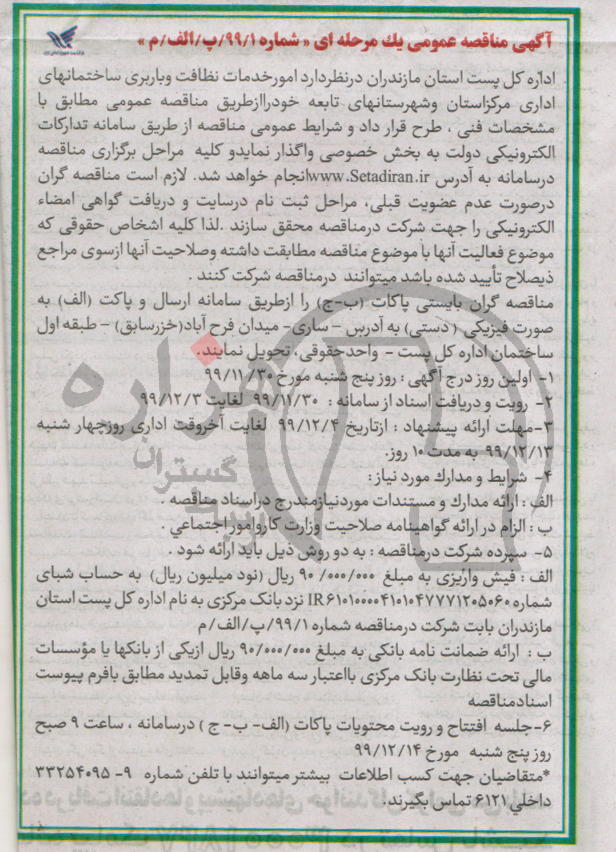 آگهی مناقصه عمومی یك مرحله ای « شماره ۹۹/۱/پ/الف/م »
اداره کل پست استان مازندران درنظردارد امورخدمات نظافت وباربری ساختمانهای
اداری مرکزاستان وشهرستانهای تابعه خودراازطریق مناقصه عمومی مطابق با
مشخصات فنی ، طرح قرار داد و شرایط عمومی مناقصه از طریق سامانه تدارکات
الکترونیکی دولت به بخش خصوصی واگذار نمایدو کلیه مراحل برگزاری مناقصه
درسامانه به آدرس www.Setadiran.irانجام خواهد شد. لازم است مناقصه گران
درصورت عدم عضویت قبلی، مراحل ثبت نام درسایت و دریافت گواهی امضاء
الکترونیکی را جهت شرکت درمناقصه محقق سازند .لذا کلیه اشخاص حقوقی که
موضوع فعالیت آنها با موضوع مناقصه مطابقت داشته وصلاحیت آنها ازسوی مراجع
ذیصلاح تأیید شده باشد میتوانند درمناقصه شرکت کنند .
مناقصه گران بایستی پاکات (ب-ج) را ازطریق سامانه ارسال و پاکت (الف) به
صورت فیزیکی ( دستی) به آدرس – ساری- میدان فرح آباد(خزرسابق) – طبقه اول
ساختمان اداره کل پست – واحدحقوقی، تحویل نمایند.
۱- اولین روز درج آگهی : روز پنج شنبه مورخ ۹۹/۱۱/۳۰
۲- رویت و دریافت اسناد از سامانه : ۹۹/۱۱/۳۰ لغایت ۹۹/۱۲/۳
۳-مهلت ارائه پیشنهاد : ازتاریخ ۹۹/۱۲/۴ لغایت آخروقت اداری روزچهار شنبه
۹۹/۱۲/۱۳ به مدت ۱۰ روز.
۴- شرایط و مدارك مورد نیاز :
الف : ارائه مدارك و مستندات موردنیازمندرج دراسناد مناقصه .
ب : الزام در ارائه گواهینامه صلاحیت وزارت کاروامور اجتماعي .
۵- سپرده شرکت درمناقصه : به دو روش ذیل باید ارائه شود .
الف : فیش واریزی به مبلغ ۹۰/۰۰۰/۰۰۰ ریال (نود میلیون ریال) به حساب شبای
شماره IR۶۱۰۱۰۰۰۰۴۱۰۱۰۴۷۷۷۱۲۰۵۰۶۰ نزد بانک مرکزی به نام اداره کل پست استان
مازندران بابت شرکت درمناقصه شماره ۹۹/۱/پ/الف/م
ب : ارائه ضمانت نامه بانکی به مبلغ ۹۰/۰۰۰/۰۰۰ ریال ازیکی از بانکها یا مؤسسات
مالی تحت نظارت بانک مرکزی بااعتبار سه ماهه وقابل تمدید مطابق بافرم پیوست
اسنادمناقصه
۶-جلسه افتتاح و رویت محتویات پاکات (الف- ب- ج ) درسامانه ، ساعت ۹ صبح
روز پنج شنبه مورخ ۹۹/۱۲/۱۴
*متقاضیان جهت کسب اطلاعات بیشتر میتوانند با تلفن شماره ۹- ۳۳۲۵۴۰۹۵
داخلي ۶۱۲۱ تماس بگیرند.
هزاره
گستران